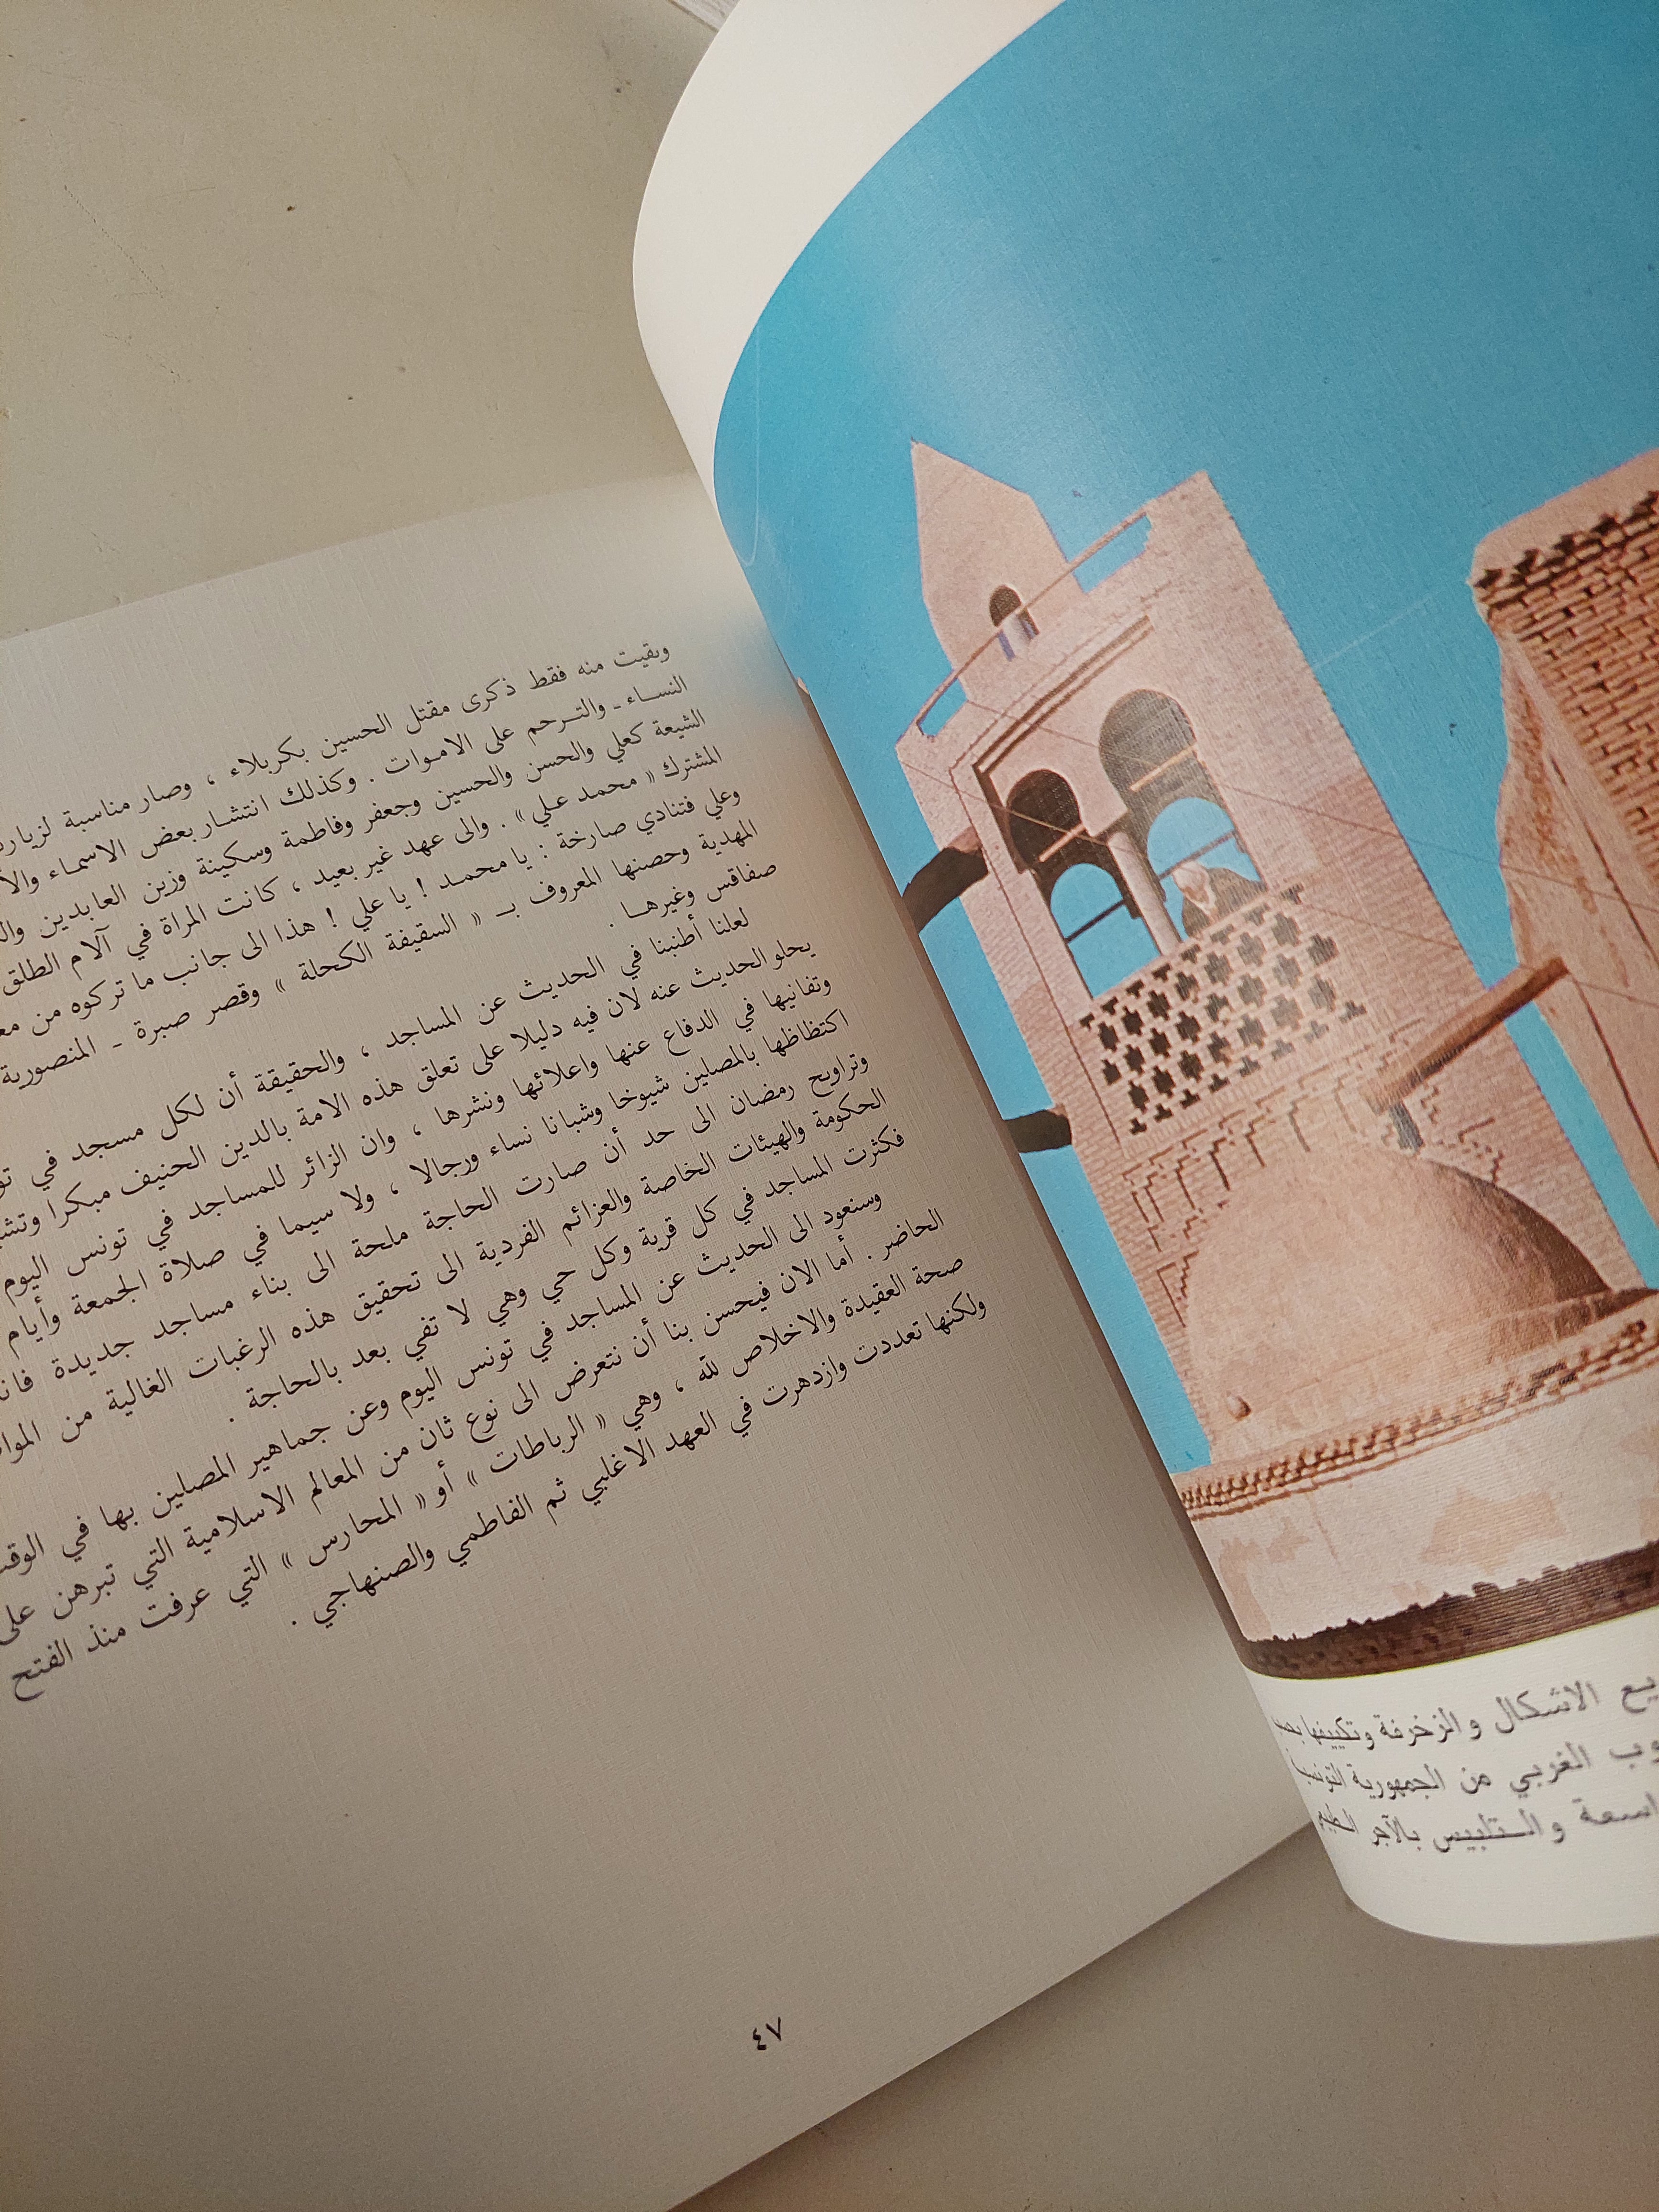 وبقيت منه فقط ذكرى مقتل الحسين بكربلاء ، وصار مناسبة
النساء - والترحم على الاموات . وكذلك انتشار بعض الاسماء
الشيعة كعلي والحسن والحسين وجعفر وفاطمة وسكينة وزين العابدين
المشترك « محمد علي » . والى عهد غير بعيد ، كانت المراة في آلام الطلق
وعلي فتنادي صارخة : يا محمد ! يا علي ! هذا الى جانب ما تركوه من
المهدية وحصنها المعروف بـ « السقيفة الكحلة » وقصر صبرة - المنصورية
صفاقس وغيرها .
لعلنا أطنبنا في الحديث عن المساجد ، والحقيقة أن لكل مسجد في
يحلو الحديث عنه لان فيه دليلا على تعلق هذه الامة بالدين الحنيف مبكرا
وتفانيها في الدفاع عنها واعلائها ونشرها ، وان الزائر للمساجد في تونس اليوم
اكتظاظها بالمصلين شيوخا وشبانا نساء ورجالا ، ولا سيما في صلاة الجمعة وأيام
وتراويح رمضان الى حد أن صارت الحاجة ملحة الى بناء مساجد جديدة
الحكومة والهيئات الخاصة والعزائم الفردية الى تحقيق هذه الرغبات الغالية من
فكثرت المساجد في كل قرية وكل حي وهي لا تفي بعد بالحاجة .
وسنعود الى الحديث عن المساجد في تونس اليوم وعن جماهير المصلين بها في
الحاضر . أما الان فيحسن بنا أن نتعرض الى نوع ثان من المعالم الاسلامية التي تبرهن على
صحة العقيدة والاخلاص لله ، وهي « الرباطات » أو « المحارس » التي عرفت منذ الفتح
ولكنها تعددت وازدهرت في العهد الاغلبي ثم الفاطمي والصنهاجي .
٤٧
الاشكال والزخرفة وتكييفها
الغربي من الجمهورية التونسية
والتلبيس بالآجر